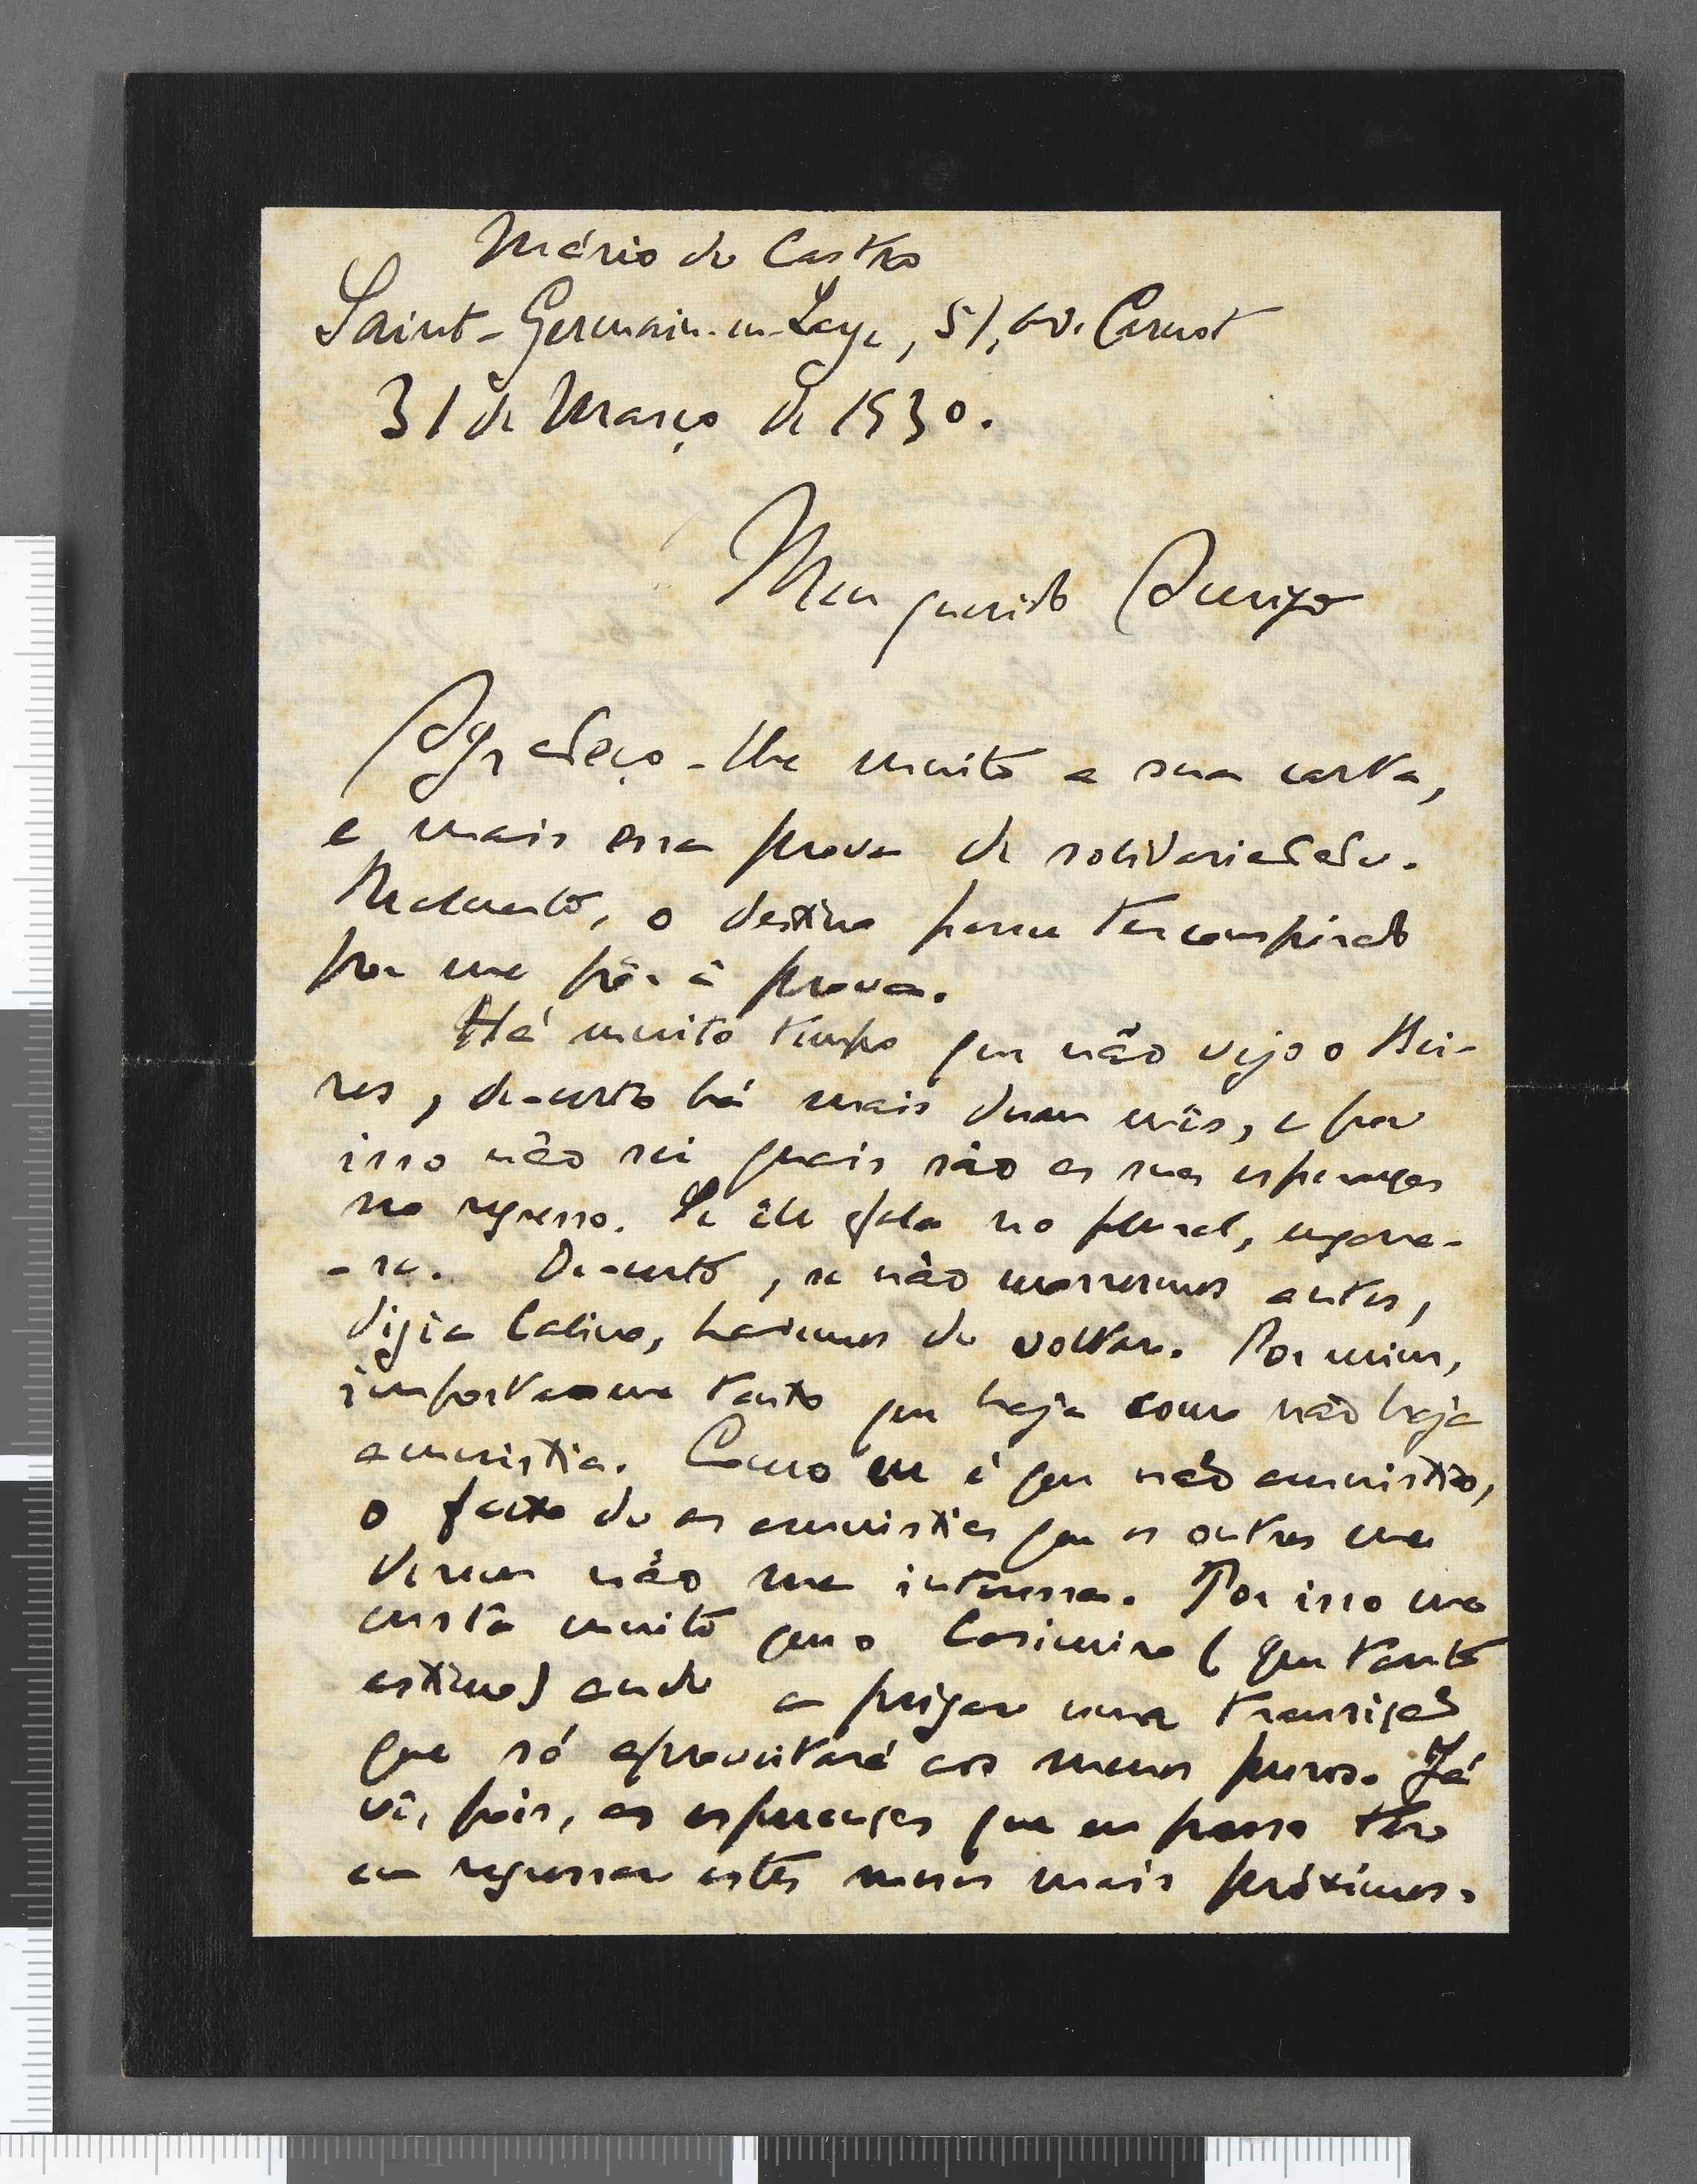 Mário de Castro
Saint-Germain-en-Laye, 51, av. Carnot
31 de Março de 1930.
Meu querido Amigo
Agradeço-lhe muito a sua carta,
e mais essa prova de solidariedade.
Realmente, o destino parece ter conspirado
por me pôr à prova.
Há muito tempo que não vejo o Mei-
res, de-certo há mais dum mês, e por
isso não sei quais são as suas esperanças
no regresso. Se êle fala no plural, engana-
-se. De-certo, se não morrermos antes,
dizia Calino, havemos de voltar. Por mim,
importa-me tanto que haja como não haja
amnistia. Como eu é que não amnistio,
o facto de as amnistias que os outros me
derem não me interessa. Por isso me
custa muito que o Casimiro (que tanto
estimo) ande a prègar uma transição
que só aproveitará aos menos puros. Já
vê, pois, as esperanças que eu posso ter
em regressar estes meses mais próximos.